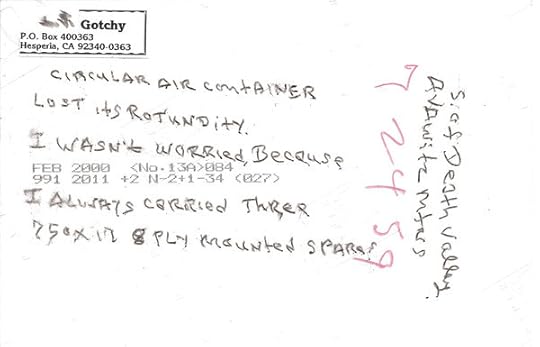 Gotchy
P.O. Box 400363
Hesperia, CA 92340-0363
CIRCULAR AIR CONTAINER
LOST ITS ROTUNDITY.
I WASN'T WORRIED, BECAUSE
FEB 2000 <No.13A>084
991 2011 +2 N-2+1-34 (027)
I ALWAYS CARRIED THREE
750X17 8 PLY MOUNTED SPARES
72459
S. of Death Valley.
AVAWITZ Mtns